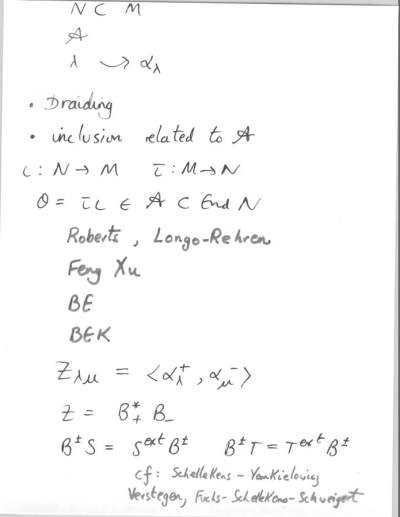 N ⊂ M
A
λ ⤳ α_λ
• Braiding
• inclusion related to A
ι : N → M   ῑ : M → N
Θ = ῑι ∈ A ⊂ End N
Roberts, Longo-Rehren
Feng Xu
BE
BEK
Z_λμ = ⟨α_λ^+, α_μ^-⟩
Z = B_+^* B_-
B^± S = S^ext B^±   B^± T = T^ext B^±
cf: Schellekens - Yankielowicz,
Verstegen, Fuchs-Schellekens-Schweigert